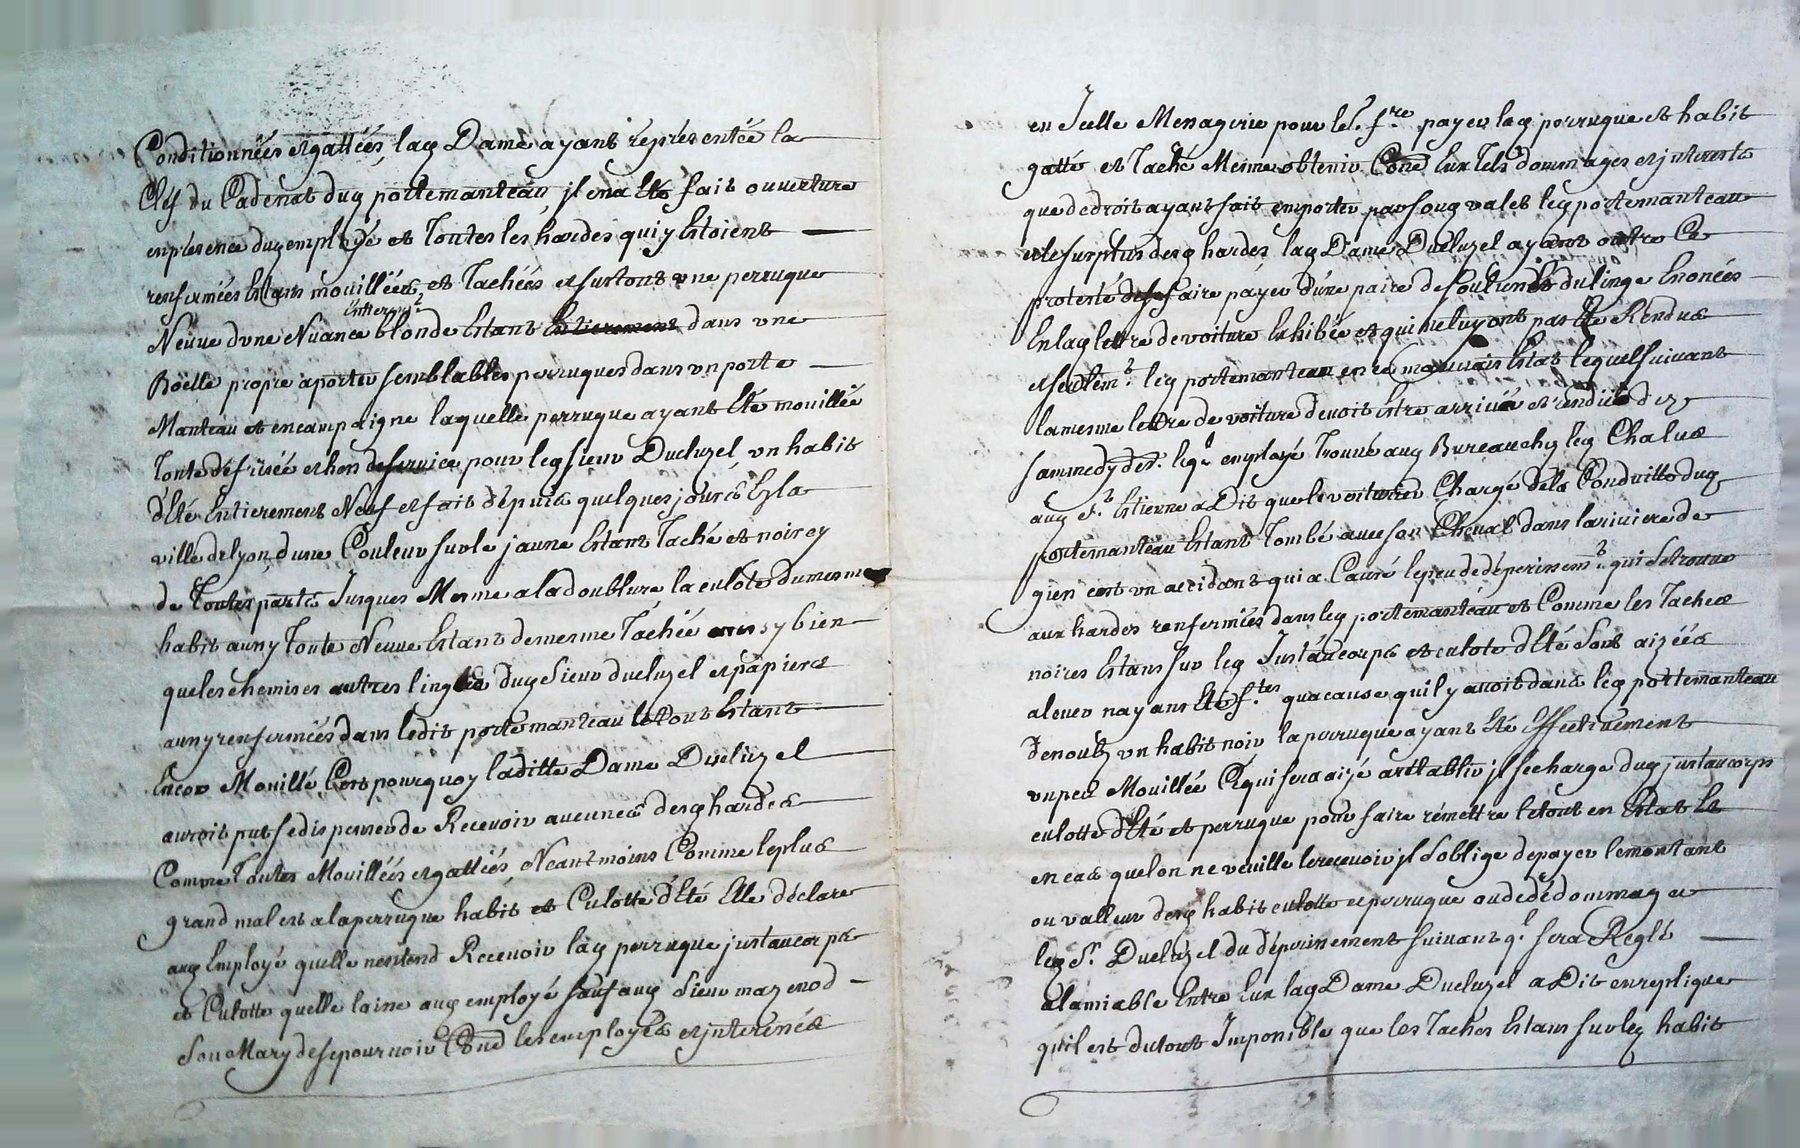 Conditionnéés et gattéés, lad Dame ayant réprésentée la
Clef du Cadenat dud portemanteau, jl en a Eté fait ouverture
en présence dud employé et Toutes lés hardes qui y Estoient
renfermées Estans mouilléés et Tachéés et surtout une perruque
Entierem.t
Neuve dvne Nuance blonde Estant Entierement dans vne
Boëtte propre aporter semblables perruques dans vn porte
Manteau et en campaigne laquelle perruque ayant Eté mouilléé
Toute défriséé et hors de service pour led sieur Ducluzel vn habit
d'Eté Entierement Neuf et fait dépuis quelques jours En la
ville de lyon, d'une Couleur sur le jaune Estant Taché et noircy
de Toutes parts Jusques Mesme a la doublure la culote du mesme
habit aussy Toute Neuve Estant de mesme Tachéé aussy bien
que les chemises autres linges dud Sieur ducluzel et papiers
aussy renferméés dans ledit porte manteau le tout Estant
Encor Mouillé, C'est pourquoy laditte Dame Ducluzel
auroit put se dispenser de Recevoir aucunes desd hardes
Comme Toutes Mouilléés et gattéés, Néantmoins Comme le plus
grand mal est a la perruque habit et Culotte d'Eté Elle déclare
aud Employé quelle n'entend Recevoir lad perruque justaucorps
et Culotte quelle laisse aud employé sauf aud Sieur mazenod
Son Mary de se pourvoir Contre les employés et jnteressés
en Jcelle Messagerie pour le.s f.re payer lad perruque et habit
gatté et Taché Mesme obtenir Contre Eux Tels dommages et jnterests
que de droit ayant fait emporter par soud valet led portemanteau
et le surplus desd hardes, lad Dame Ducluzel ayant outre Ce
protesté de se faire payer d'une paire de souliers et du linge Enoncés
En lad lettre de voiture Exhibée et qui ne luy ont pas Eté Rendus
et seulem.t led portemanteau en ce mauvais Estat lequel suivant
la mesme lettre de voiture devoit Estre arrivé et rendu dez
sammedy der. leq.l employé Trouvé aud Bureau chez led Chalus
aud S.t Estienne a Dit que le voiturier Chargé de la Conduitte dud
portemanteau Estant Tombé avec son Cheval dans la riviere de
gien c'est vn accidant qui a Causé le peu de déperissem.t qui se trouve
aux hardes renferméés dans led portemanteau et Comme les Taches
noires Estans sur led Justaucorps et culote d'Eté sont aizéés
a lever nayans Eté f.tes qu'a cause qu'il y avoit dans led portemanteau
Dessoubz vn habit noir la perruque ayant Eté Effectivement
vn peu Mouilléé Ce qui sera aizé a rétablir jl se charge dud justaucorps
culotte d'Eté et perruque pour faire rémettre le tout en Estat Et
en cas que l'on ne veuille le recevoir jl s'oblige de payer le montant
ou valleur desd habit culotte et perruque ou de dédommager
led S.r Ducluzel du déperissement suivant q.l sera Reglé
a lamiable Entre Eux lad Dame Ducluzel a Dit en replique
qu'il est du tout Jmpossible que les Taches Estans sur led habit